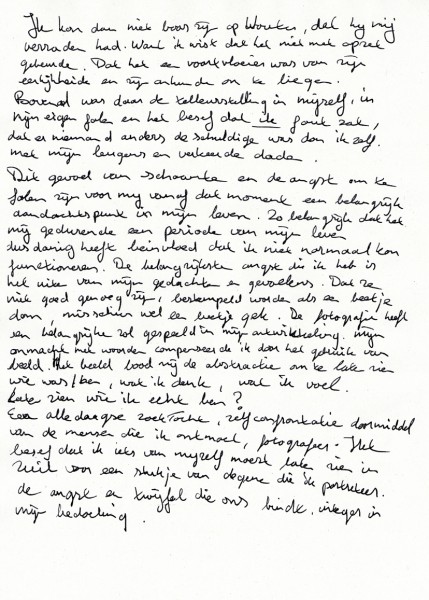 Ik kon dan niet boos zijn op Wouter, dat hij mij
verraden had. Want ik wist dat het niet met opzet
gebeurde. Dat het een voortvloeisel was van zijn
eerlijkheid en zijn onkunde om te liegen.
Bovenal was daar de teleurstelling in mijzelf, in
mijn eigen falen en het besef dat ik fout zat,
dat er niemand anders de schuldige was dan ik zelf.
met mijn leugens en verkeerde daden.
Dit gevoel van schaamte en de angst om te
falen zijn voor mij vanaf dat moment een belangrijk
aandachtspunt in mijn leven. Zo belangrijk dat het
mij gedurende een periode van mijn leven
dusdanig heeft beinvloed dat ik niet normaal kon
functioneren. De belangrijkste angst die ik heb is
het uiten van mijn gedachten en gevoelens. Dat ze
niet goed genoeg zijn, bestempeld worden als een beetje
dom, misschien wel een beetje gek. De fotografie heeft
een belangrijke rol gespeeld in mijn ontwikkeling. Mijn
onmacht met woorden compenseerde ik door het gebruik van
beeld. Het beeld bood mij de abstractie om te laten zien
wie ik was/ben, wat ik denk, wat ik voel.
Laten zien wie ik echt ben?
Een alledaagse zoektocht, zelfconfrontatie doormiddel
van de mensen die ik ontmoet, fotografeer. Het
besef dat ik iets van mijzelf moest laten zien in
ruil voor een stukje van degene die ik portretteer.
de angst en twijfel die ons bindt, integer in
mijn bedoeling.